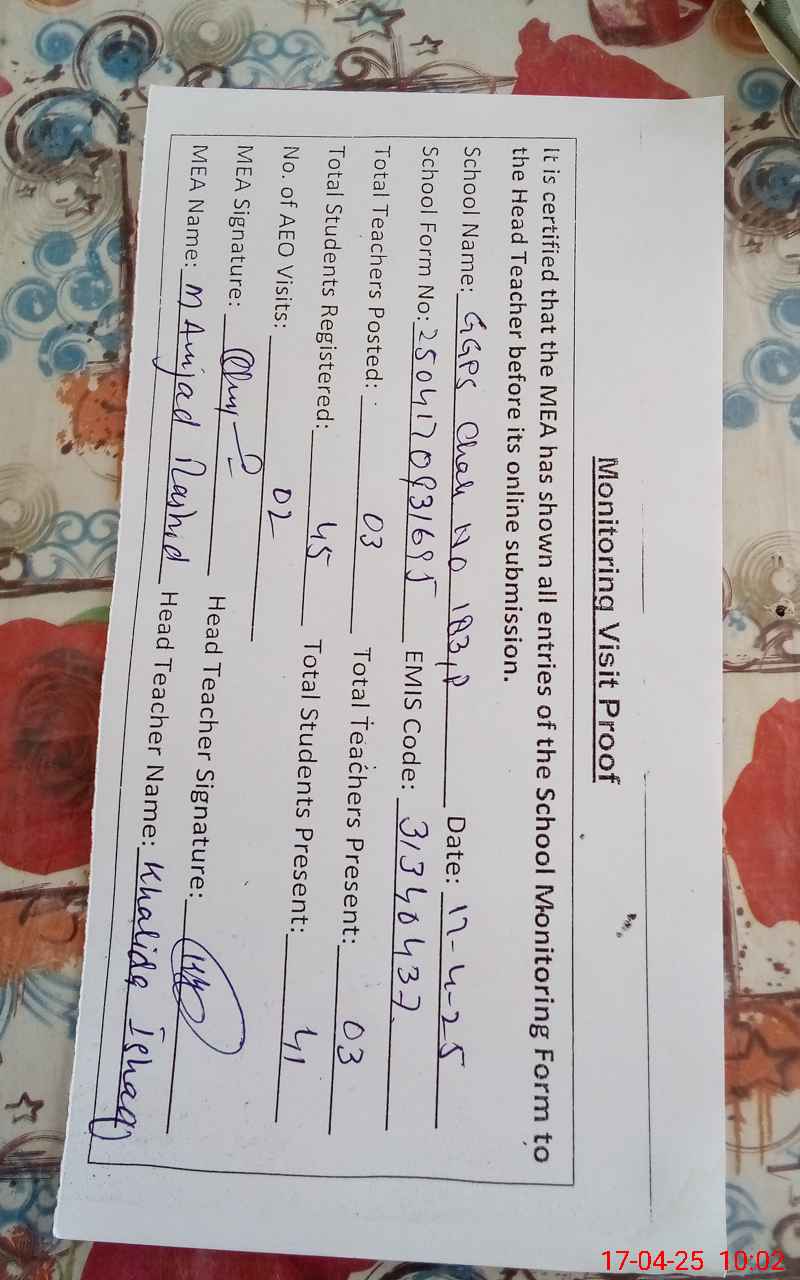 Monitoring Visit Proof
It is certified that the MEA has shown all entries of the School Monitoring Form to
the Head Teacher before its online submission.
School Name: GGPS Chak No 183,P Date: 17-4-25
School Form No: 2504170931695 EMIS Code: 31340437
Total Teachers Posted: 03 Total Teachers Present: 03
Total Students Registered: 45 Total Students Present: 41
No. of AEO Visits: 02
MEA Signature: Head Teacher Signature:
MEA Name: M Amjad Rashid Head Teacher Name: Khalida Ishaq
17-04-25 10:02